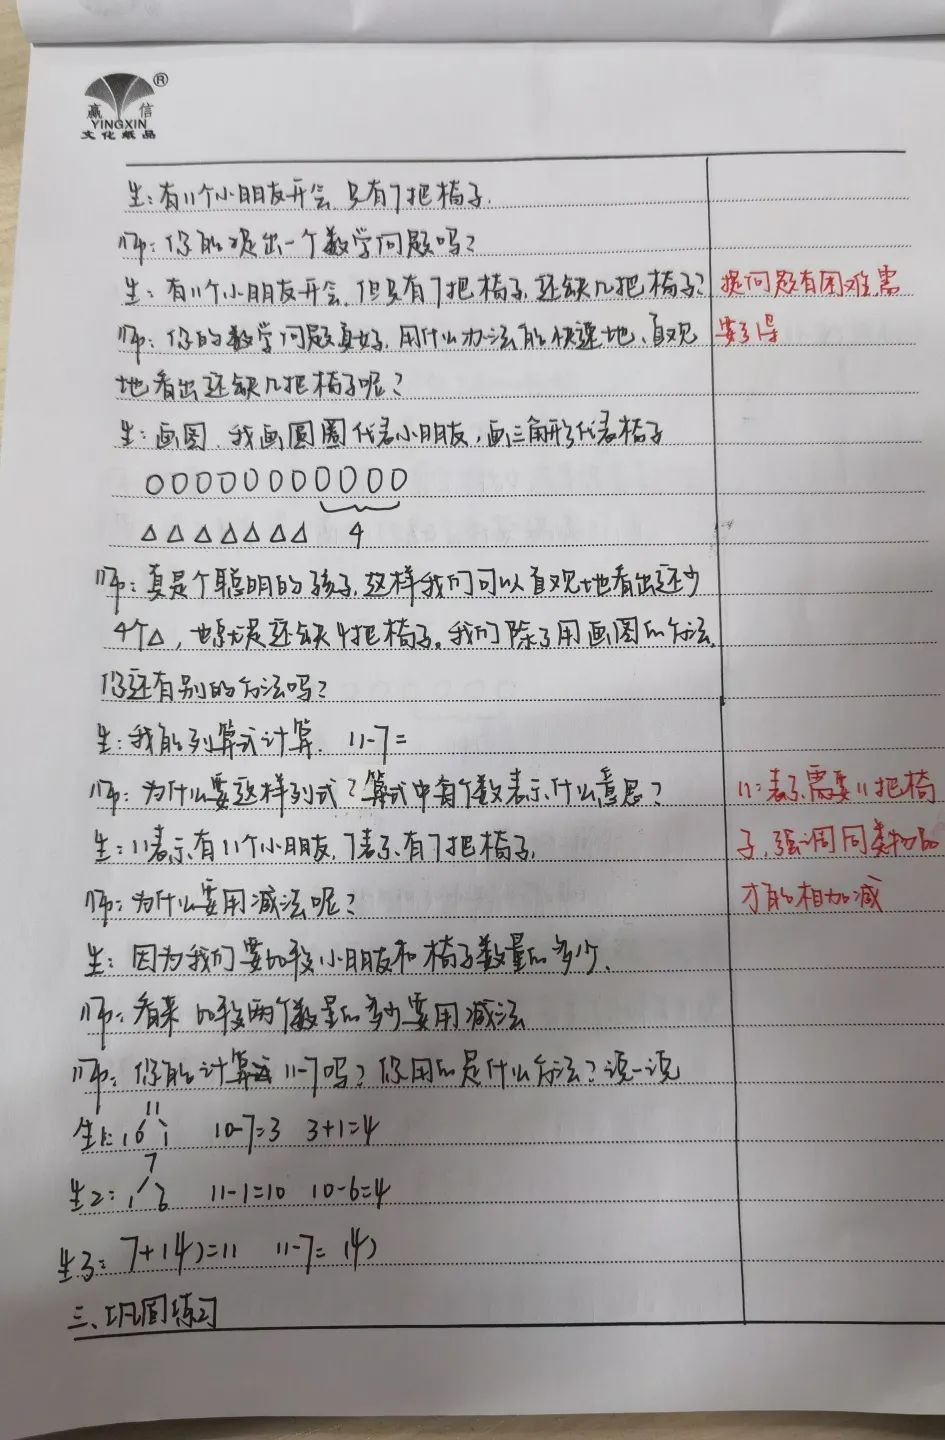 赢 信
YINGXIN
文化纸品
生:有11个小朋友开会,只有7把椅子.
师:你能提出一个数学问题吗?
生:有11个小朋友开会,但只有7把椅子,还缺几把椅子?
提问题有困难,需
师:你的数学问题真好,用什么办法能快速地、直观
要引导
地看出还缺几把椅子呢?
生:画图,我画圆圈代表小朋友,画三角形代表椅子
○○○○○○○○○○○
△△△△△△△ 4
师:真是个聪明的孩子,这样我们可以直观地看出还少
4个△,也就是还缺4把椅子。我们除了用画图的方法,
你还有别的方法吗?
生:我能列算式计算. 11-7=
师:为什么要这样列式?算式中每个数表示什么意思?
11:表示需要11把椅
生:11表示有11个小朋友,7表示有7把椅子,
子,强调同类物品
师:为什么要用减法呢?
才能相加减
生:因为我们要比较小朋友和椅子数量的多少.
师:看来比较两个数量的多少要用减法
师:你能计算11-7吗?你用的是什么方法?说一说
11
生1: 10 1 10-7=3 3+1=4
7
生2: 1 6 11-1=10 10-6=4
生3: 7+(4)=11 11-7=(4)
三、巩固练习